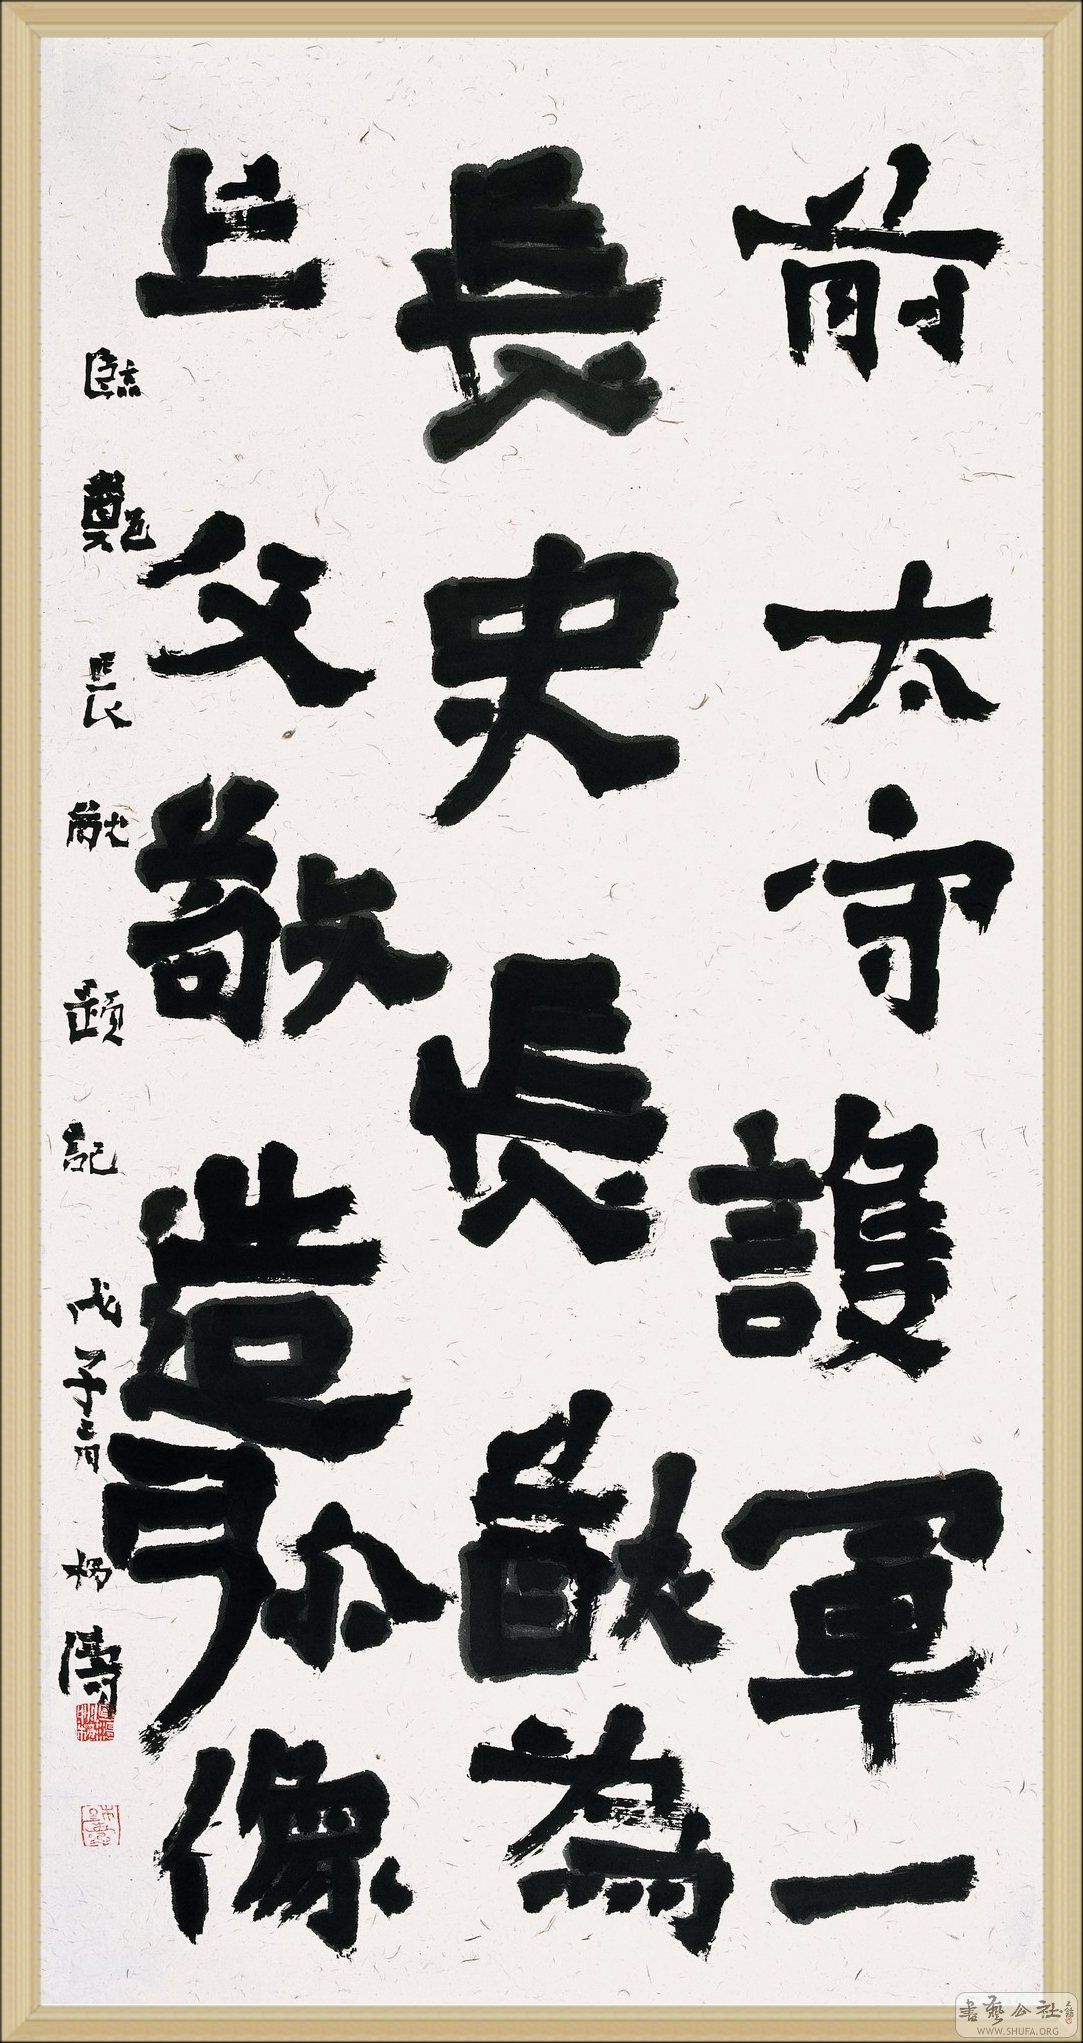 前太守護軍一
長史長猷為
亡父敬造弥像
臨鄭長猷題記 戊子 月 楊濤
書藝公社
WWW.SHUFA.ORG